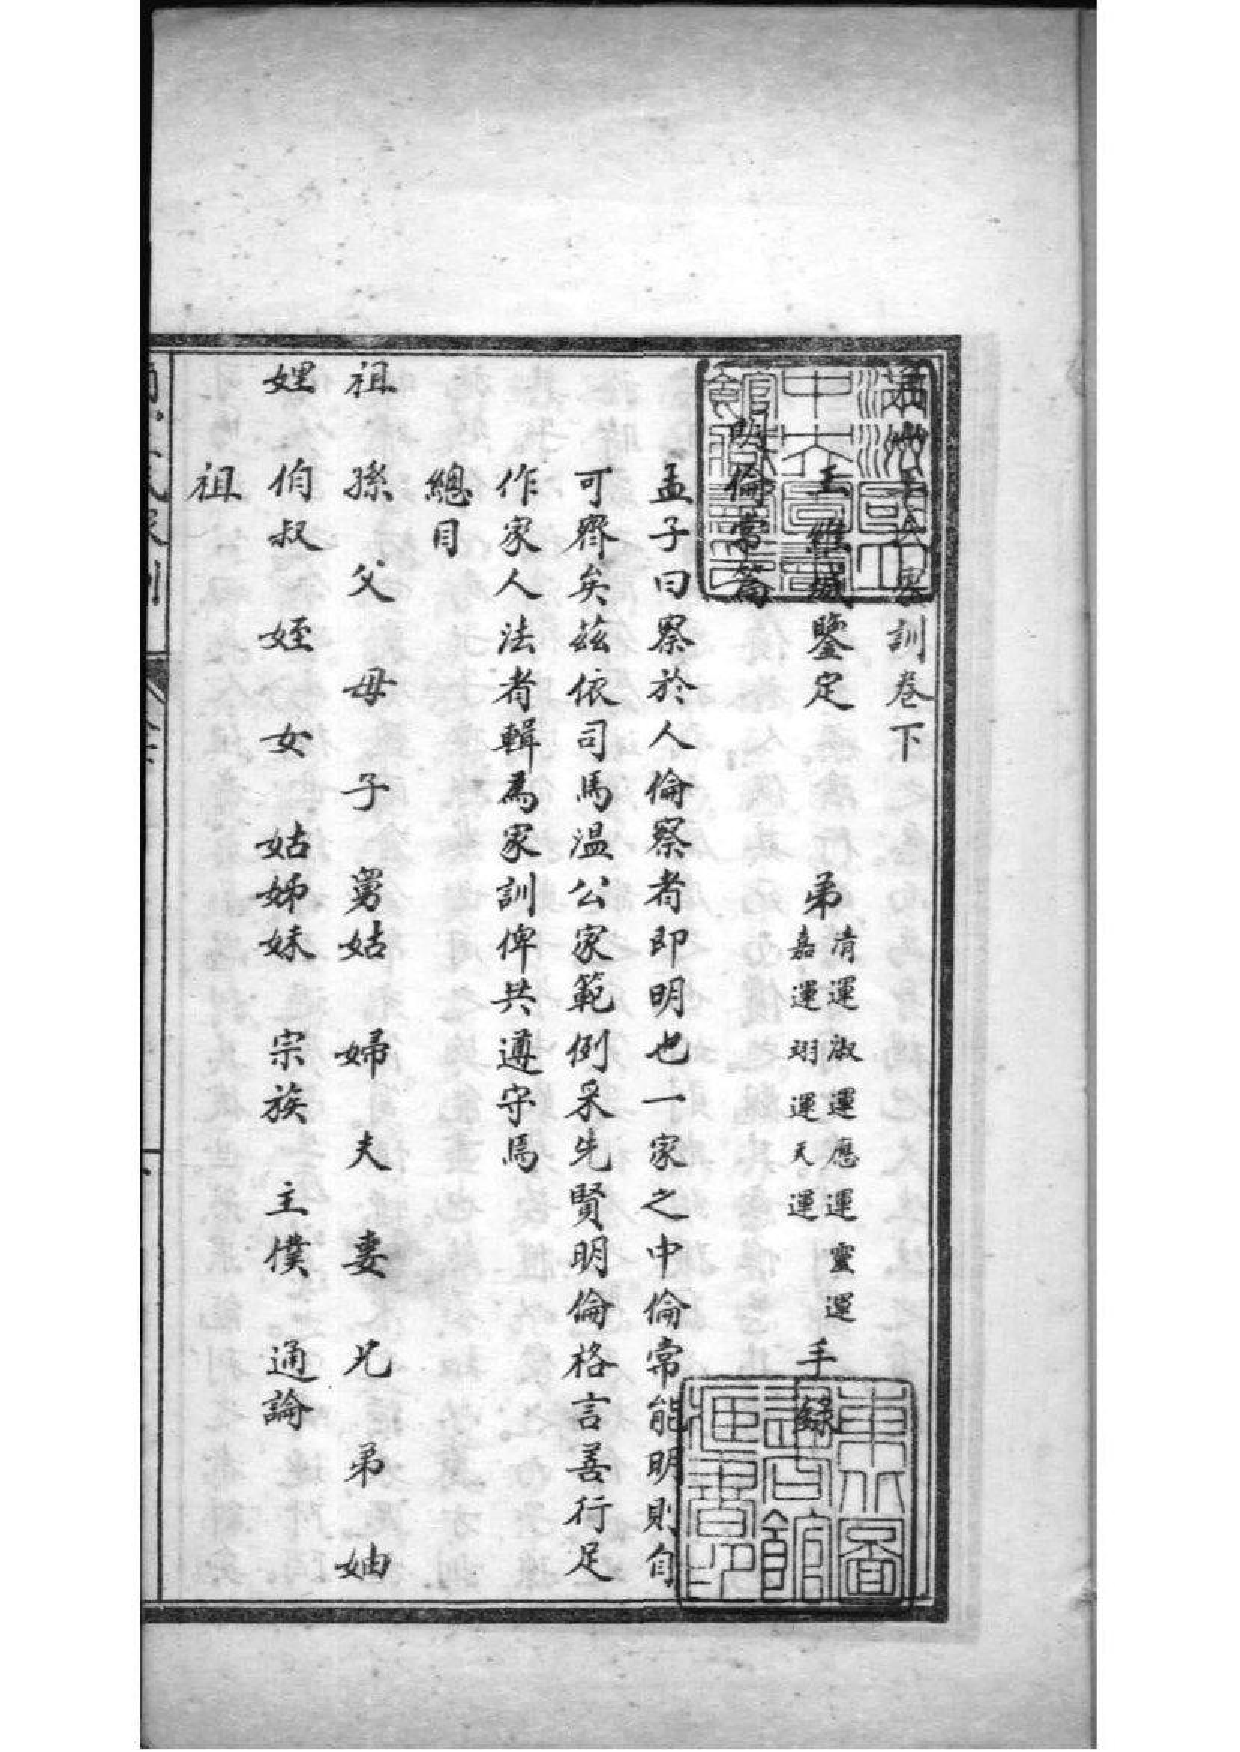 王氏家訓卷下
王維咸鑒定 弟 清運 淑運 應運 靈運 嘉運 翊運 天運 手錄
明倫常篇
孟子曰察於人倫察者即明也一家之中倫常能明則自
可齊矣茲依司馬溫公家範例采先賢明倫格言善行足
作家人法者輯為家訓俾共遵守焉
總目
祖 孫 父 母 子 舅姑 婦 夫 妻 兄 弟 妯
娌 伯叔 姪 女 姑姊妹 宗族 主僕 通論
祖
東北圖書館所藏書印